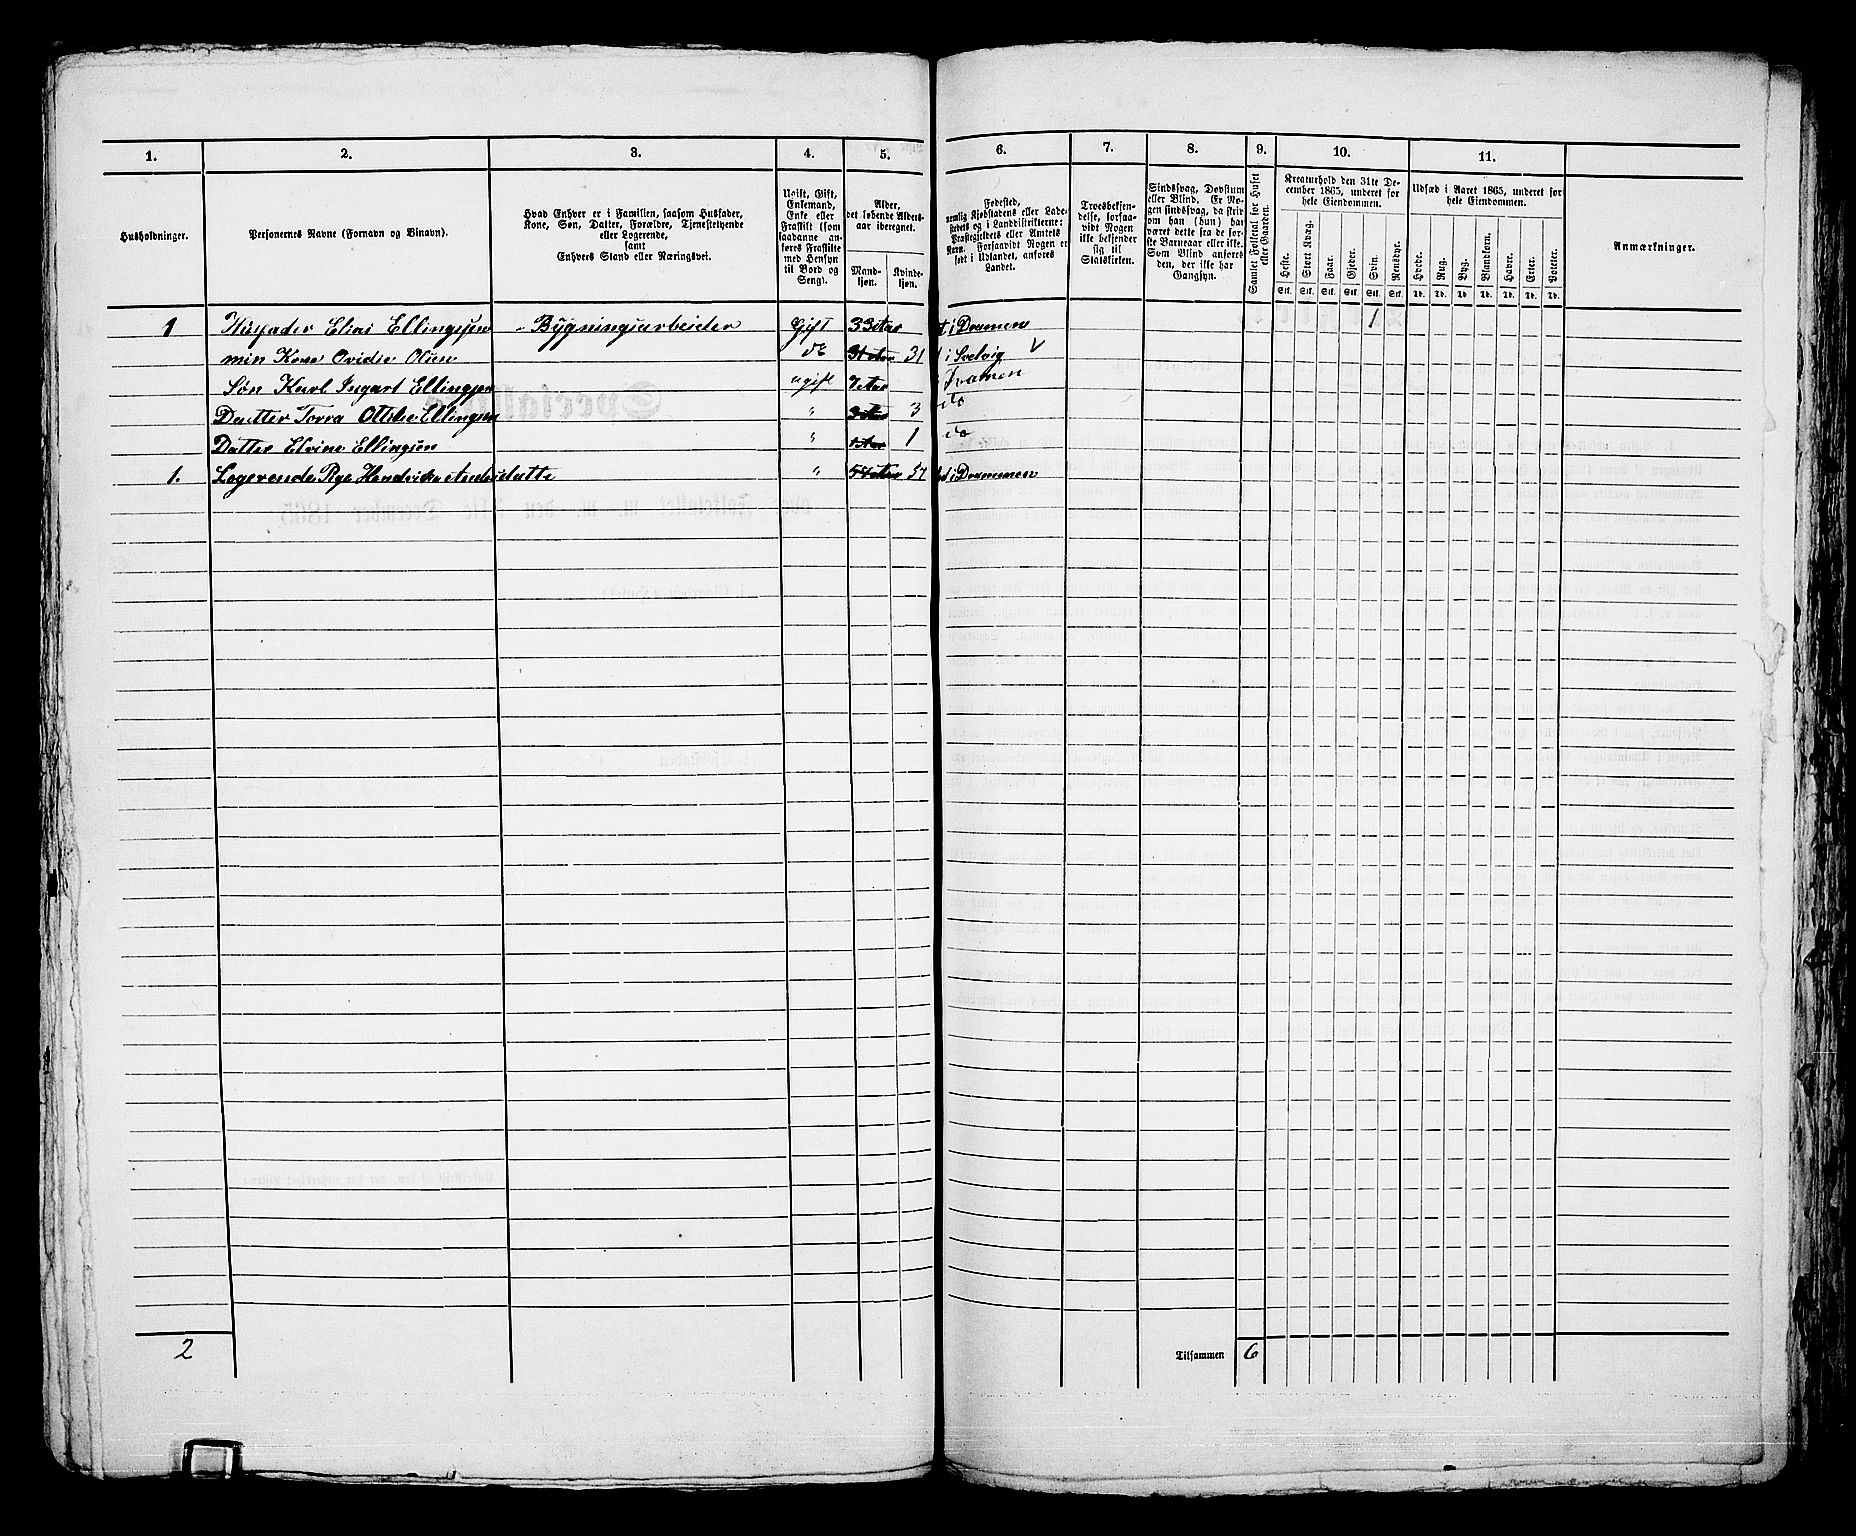 1. 2. 3. 4. 5. 6. 7. 8. 9. 10. 11.
Husholdninger.
Personernes Navne (Fornavn og Binavn).
Hvad Enhver er i Familien, saasom Husfader,
Kone, Søn, Datter, Forældre, Tjenestetyende
eller Logerende,
samt
Enhvers Stand eller Næringsvei.
Ugift, Gift,
Enkemand,
Enke eller
Fraskilt (som
saadanne an-
føres Fraskilte
med Hensyn
til Bord og
Seng).
Alder,
det løbende Alders-
aar iberegnet.
Mand-
kjøn.
Kvinde-
kjøn.
Fødested,
nemlig Kjøbstadens eller Lade-
stedets og i Landdistrikterne:
Præstegjeldets eller Amtets
Navn. Forsaavidt Nogen er
født i Udlandet, anføres
Landet.
Troesbekjen-
delse, forsaa-
vidt Nogen
ikke bekjender
sig til
Statskirken.
Sindssvag, Døvstum
eller Blind. Er No-
gen sindssvag, da skriv
om han (hun) har
været dette fra de før-
ste Barneaar eller ikke.
Som Blind anføres
den, der ikke har
Gangsyn.
Samlet Folketal for Huset
eller Gaarden.
Kreaturhold den 31te De-
cember 1865, underet for
hele Eiendommen.
Heste. Stort Kvæg. Faar. Gjeder. Svin. Rensdyr.
Stk. Stk. Stk. Stk. Stk. Stk.
Udsæd i Aaret 1865, underet for
hele Eiendommen.
Hvede. Rug. Byg. Blandkorn. Havre. Erter. Poteter.
Td. Td. Td. Td. Td. Td. Td.
Anmærkninger.
1 Husfader Elias Ellingsen Bygningsarbeider Gift 33 Aar i Dramen 1
min Kone Ovidie Olsen do 31 Aar 31 i Svelvig V
Søn Karl Ingart Ellingsen ugift 7 Aar Dramen
Datter Torra Ottilie Ellingsen " 3 Aar 3 do
Datter Elvine Ellingsen " 1 Aar 1 do
1. Logerende " 57 i Drammen
2 Tilsammen 6